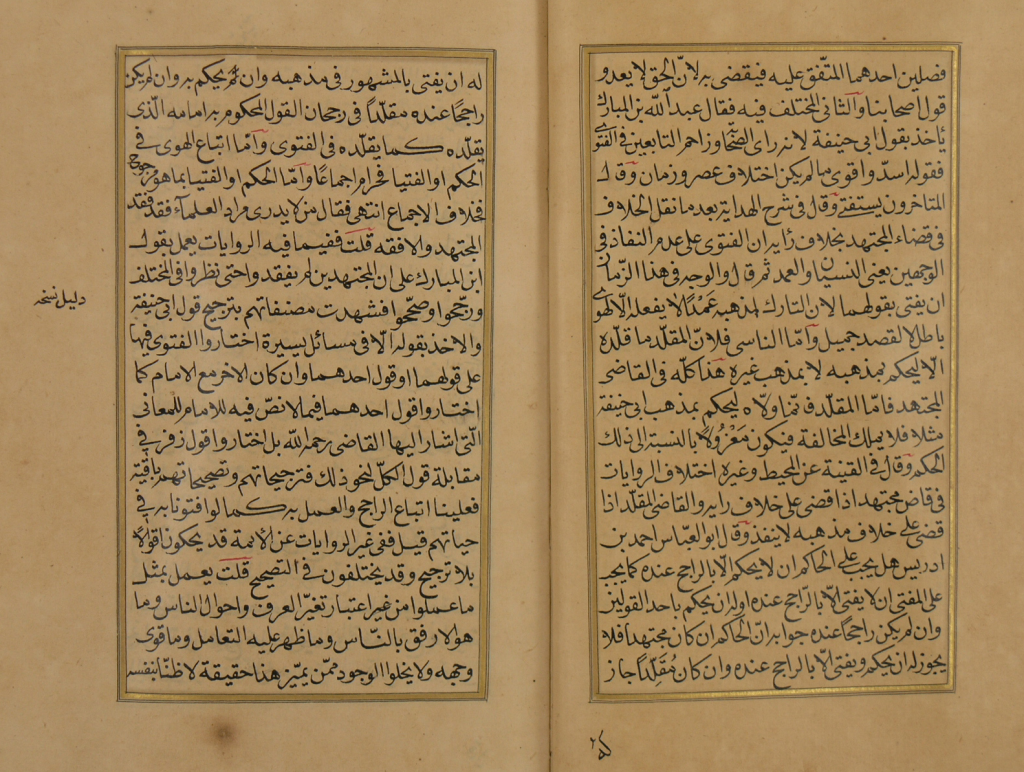 فصلين احدهما المتّفق عليه فيقضى به لانّ الحق لا يعدو
قول اصحابنا والثانى المختلف فيه فقال عبد الله بن المبارك
يأخذ بقول ابى حنيفة لانه راى الصحابة وزاحم التابعين فى الفتوى
فقوله اسدّ واقوى ما لم يكن اختلاف عصر وزمان وقال
المتاخرون يستفتى وقال فى شرح الهداية بعد ما نقل الخلاف
فى قضاء المجتهد بخلاف رأيه ان الفتوى على عدم النفاذ فى
الوجهين يعنى النسيان والعمد ثم قال والوجه فى هذا الزمان
ان يفتى بقولهما لان التارك لمذهبه عمدًا لا يفعله الّا لهوى
باطل لا لقصد جميل وامّا الناسى فلانّ المقلّد ما قلّده
الّا ليحكم بمذهبه لا بمذهب غيره هذا كلّه فى القاضى
المجتهد فامّا المقلّد فانّما ولّاه ليحكم بمذهب ابى حنيفة
مثلا فلا يملك المخالفة فيكون معزولًا بالنسبة الى ذلك
الحكم وقال فى القنية عن المحيط وغيره اختلاف الروايات
فى قاض مجتهد اذا قضى على خلاف رايه والقاضى المقلّد اذا
قضى على خلاف مذهبه لا ينفذ وقال ابو العبّاس احمد بن
ادريس هل يجب على الحاكم ان لا يحكم الّا بالراجح عنده كما يجب
على المفتى ان لا يفتى الّا بالرّاجح عنده او له ان يحكم باحد القولين
وان لم يكن راجحًا عنده جوابه انّ الحاكم ان كان مجتهدا فلا
يجوز له ان يحكم ويفتى الّا بالراجح عنده وان كان مُقلِّدًا جاز
له ان يفتى بالمشهور فى مذهبه وان يحكم به وان لم يكن
راجحًا عنده مقلّدًا فى رجحان القول المحكوم به امامه الّذى
يقلّده كما يقلّده فى الفتوى وامّا اتباع الهوى فى
الحكم او الفتيا فحرام اجماعًا وامّا الحكم او الفتيا بما هو مرجوح
فخلاف الاجماع انتهى فقال من لا يدرى مراد العلماء فقد فقد
المجتهد والافقه قلت ففيما فيه الروايات يعمل بقول
ابن المبارك على ان المجتهدين لم يفقدوا حتى نظروا فى المختلف
ورجّحوا وصحّحوا فشهدت مصنفاتهم بترجيح قول ابى حنيفة
والاخذ بقوله الّا فى مسائل يسيرة اختاروا الفتوى فيها
على قولهما او قول احدهما وان كان الاخر مع الامام كما
اختاروا قول احدهما فيما لا نصّ فيه للامام للمعانى
الّتى اشار اليها القاضى رحمه الله بل اختاروا قول زفر فى
مقابلة قول الكلّ لنحو ذلك فترجيحاتهم وتصحيحاتهم باقية
فعلينا اتباع الراجح والعمل به كما لو افتونا به فى
حياتهم قيل ففى غير الروايات عن الائمة قد يحكون اقوالًا
بلا ترجيح وقد يختلفون فى التصحيح قلت يعمل بمثل
ما عملوا من غير اعتبار تغيّر العرف واحوال الناس وما
هو الارفق بالنّاس وما ظهر عليه التعامل وما قوى
وجهه ولا يخلو الوجود ممّن يميّز هذا حقيقة لا ظنّا بنفسه
دليل نسخه